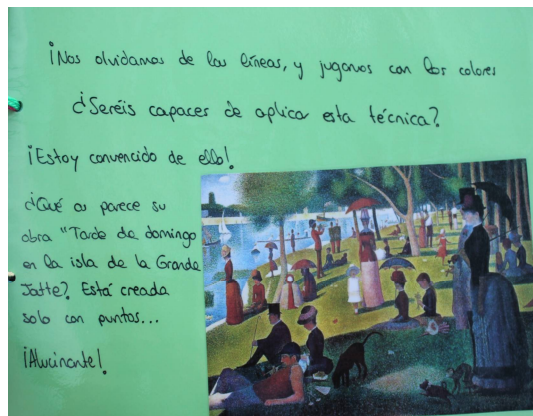 ¡Nos olvidamos de las líneas, y jugamos con los colores
¿Seréis capaces de aplicar esta técnica?
¡Estoy convencido de ello!
¿Qué os parece su
obra "Tarde de domingo
en la isla de la Grande
Jatte? Está creada
solo con puntos...
¡Alucinante!